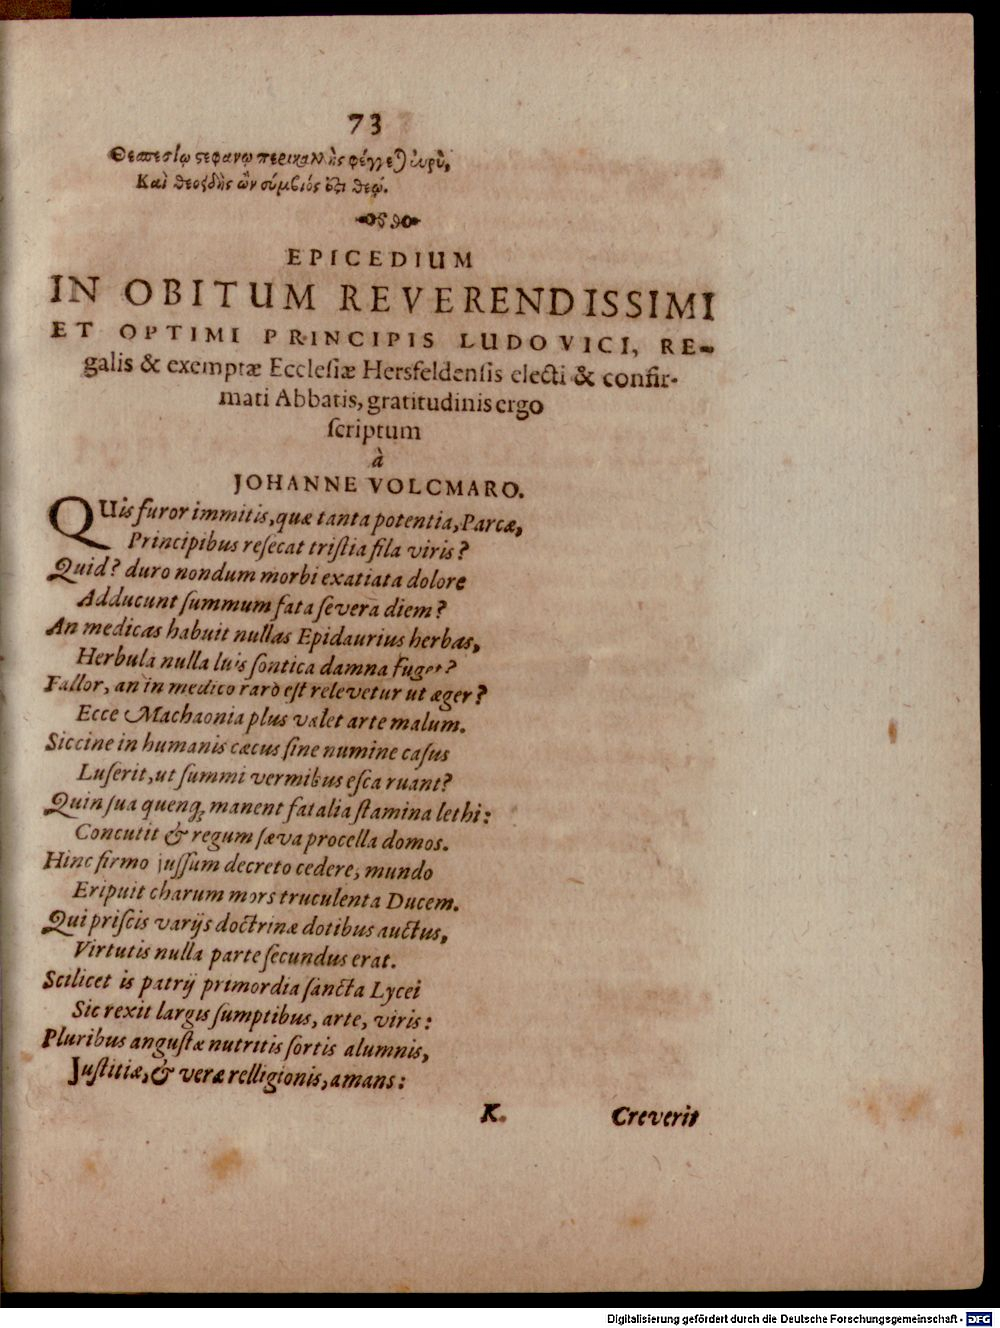 73
Θεσπεσίῳ ςεφανῳ περικαλλὴς φέγγε
Καὶ θεοειδὴς ὢν σύμβιός ἐςι θεῷ.
EPICEDIUM
IN OBITUM REVERENDISSIMI
ET OPTIMI PRINCIPIS LUDOVICI, RE-
galis & exemptæ Ecclesiæ Hersfeldensis electi & confir-
mati Abbatis, gratitudinis ergo
scriptum
à
JOHANNE VOLCMARO.
QUis furor immitis, quæ tanta potentia, Parcæ,
Principibus resecat tristia fila viris?
Quid? duro nondum morbi exatiata dolore
Adducunt summum fata severa diem?
An medicas habuit nullas Epidaurius herbas,
Herbula nulla luis sontica damna fuget?
Fallor, an in medico rarò est relevetur ut æger?
Ecce Machaonia plus valet arte malum.
Siccine in humanis cæcus sine numine casus
Luserit, ut summi vermibus esca ruant?
Quin sua quenq; manent fatalia stamina lethi:
Concutit & regum sæva procella domos.
Hinc firmo jussum decreto cedere, mundo
Eripuit charum mors truculenta Ducem.
Qui priscis varijs doctrinæ dotibus auctus,
Virtutis nulla parte secundus erat.
Scilicet is patrij primordia sancta Lycei
Sic rexit largis sumptibus, arte, viris:
Pluribus angustæ nutritis sortis alumnis,
Justitiæ, & veræ relligionis, amans:
K. Creverit
Digitalisierung gefördert durch die Deutsche Forschungsgemeinschaft - DFG